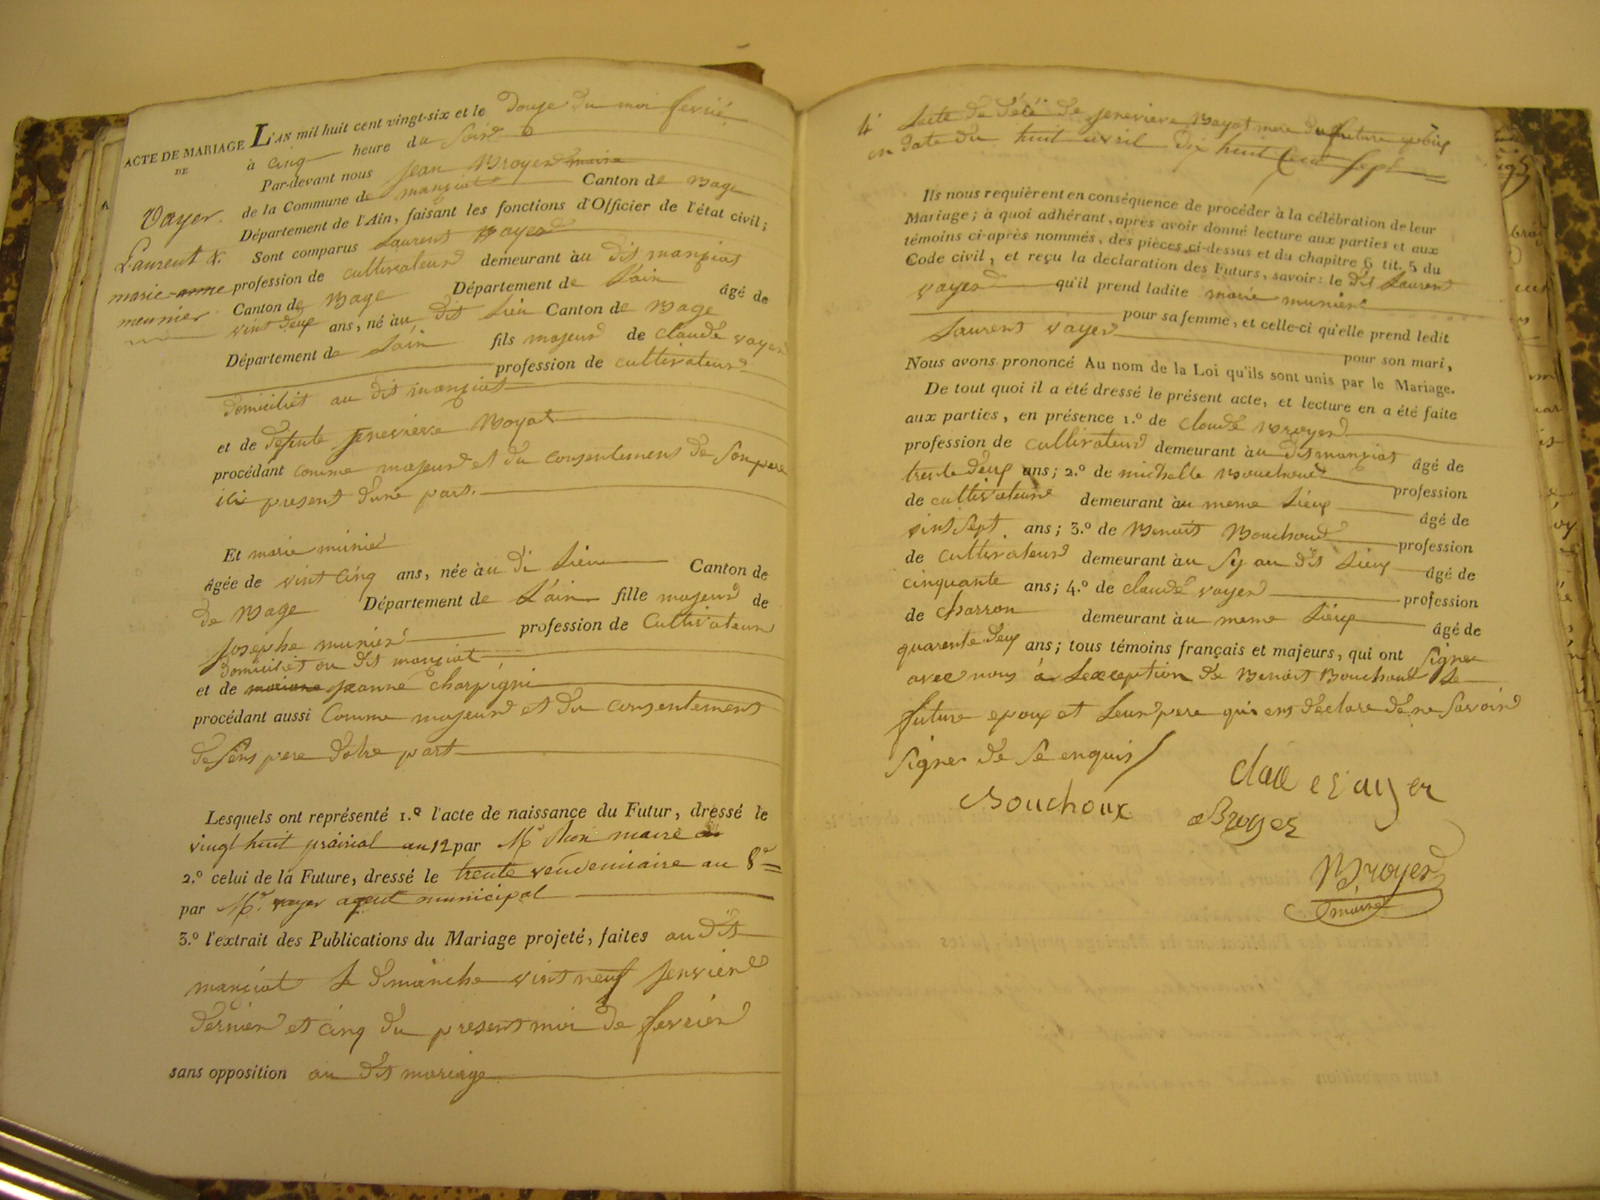 ACTE DE MARIAGE
DE
Vayer
Laurent &
marie-anne
meunier
L'AN mil huit cent vingt-six et le Douze du moi fevrié
à cinq heure du Soire
Par-devant nous jean Broyer maire
de la Commune de manziat Canton de Bage
Département de l'Ain, faisant les fonctions d'Officier de l'état civil;
Sont comparus Laurent vayer
profession de cultivateur demeurant àu dit manziat
Canton de Bage Département de L'ain âgé de
vint deux ans, né àu dit Lieu Canton de Bage
Département de L'ain fils majeur de claude vayer
profession de cultivateur
domiciliét au dit manziat
et de defunte jenevieve Boyat
procédant comme majeur et du consentement de Son pere
ici present d'une part.
Et marie munier
âgée de vint cinq ans, née àu di Lieu Canton de
de Bage Département de L'ain fille majeur de
josephe munier profession de Cultivateur
domiciliét au dit manziat
et de jeanne charpigni
procédant aussi Comme majeur et du consentement
de Sons pere d'otre part
Lesquels ont représenté 1.º l'acte de naissance du Futur, dressé le
vingt huit prairial an 12 par Mr maire
2.º celui de la Future, dressé le trente vendemiaire an 8e
par Mr. vayer agent municipal
3.º l'extrait des Publications du Mariage projeté, faites au dit
manziat Le dimanche vint neuf jenvier
dernier et cinq du present moi de fevrier
sans opposition au dit mariage
4º Lacte de décé de jenevieve Boyat mere du future epoux
en date du huit avril dix huit Cent sept
Ils nous requièrent en conséquence de procéder à la célébration de leur
Mariage; à quoi adhérant, après avoir donné lecture aux parties et aux
témoins ci-après nommés, des pièces ci-dessus et du chapitre 6 tit. 5 du
Code civil, et reçu la déclaration des Futurs, savoir: le dit Laurent
vayer qu'il prend ladite marie munier
pour sa femme, et celle-ci qu'elle prend ledit
Laurent vayer pour son mari,
Nous avons prononcé Au nom de la Loi qu'ils sont unis par le Mariage.
De tout quoi il a été dressé le présent acte, et lecture en a été faite
aux parties, en présence 1.º de claude Broyer
profession de cultivateur demeurant àu dit manziat âgé de
trente deux ans; 2.º de michelle Bouchoud profession
de cultivateur demeurant àu meme Lieux âgé de
vint sept ans; 3.º de Benoit Bouchoud profession
de cultivateur demeurant àu Sy au dit Lieux âgé de
cinquante ans; 4.º de claude vayer profession
de charron demeurant àu meme Lieux âgé de
quarente deux ans; tous témoins français et majeurs, qui ont Signer
avec nous à Lexception de Benoit Bouchoud Le
future epoux et Leur pere qui ens declare de ne Savoir
Signer de Se enquis
Bouchoux
Broyer
Broyer
maire